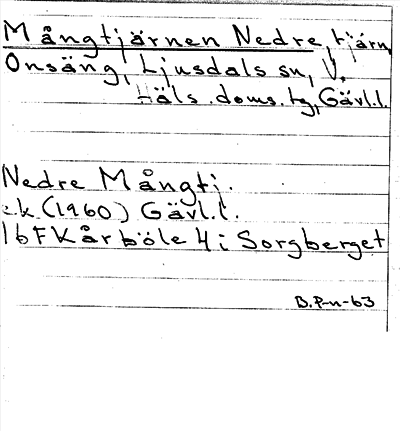 Mångtjärnen Nedre, tjärn
Onsäng, Ljusdals sn, V.
Häls. doms. tg, Gävl.l.
Nedre Mångtj.
ek (1960) Gävl.l.
16F Kårböle 4 i Sorgberget
B.P-n-63